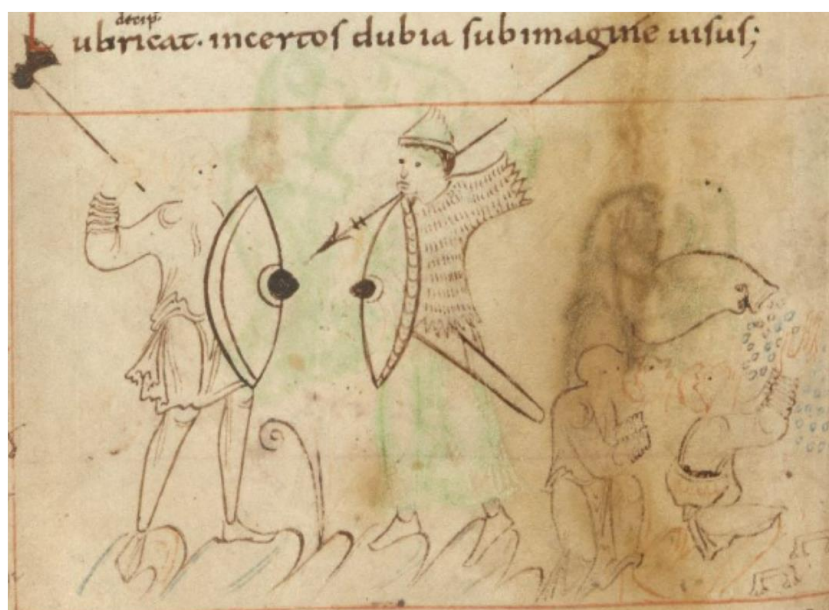 decip̅
ubricat· incertos dubia subimagine uisus;